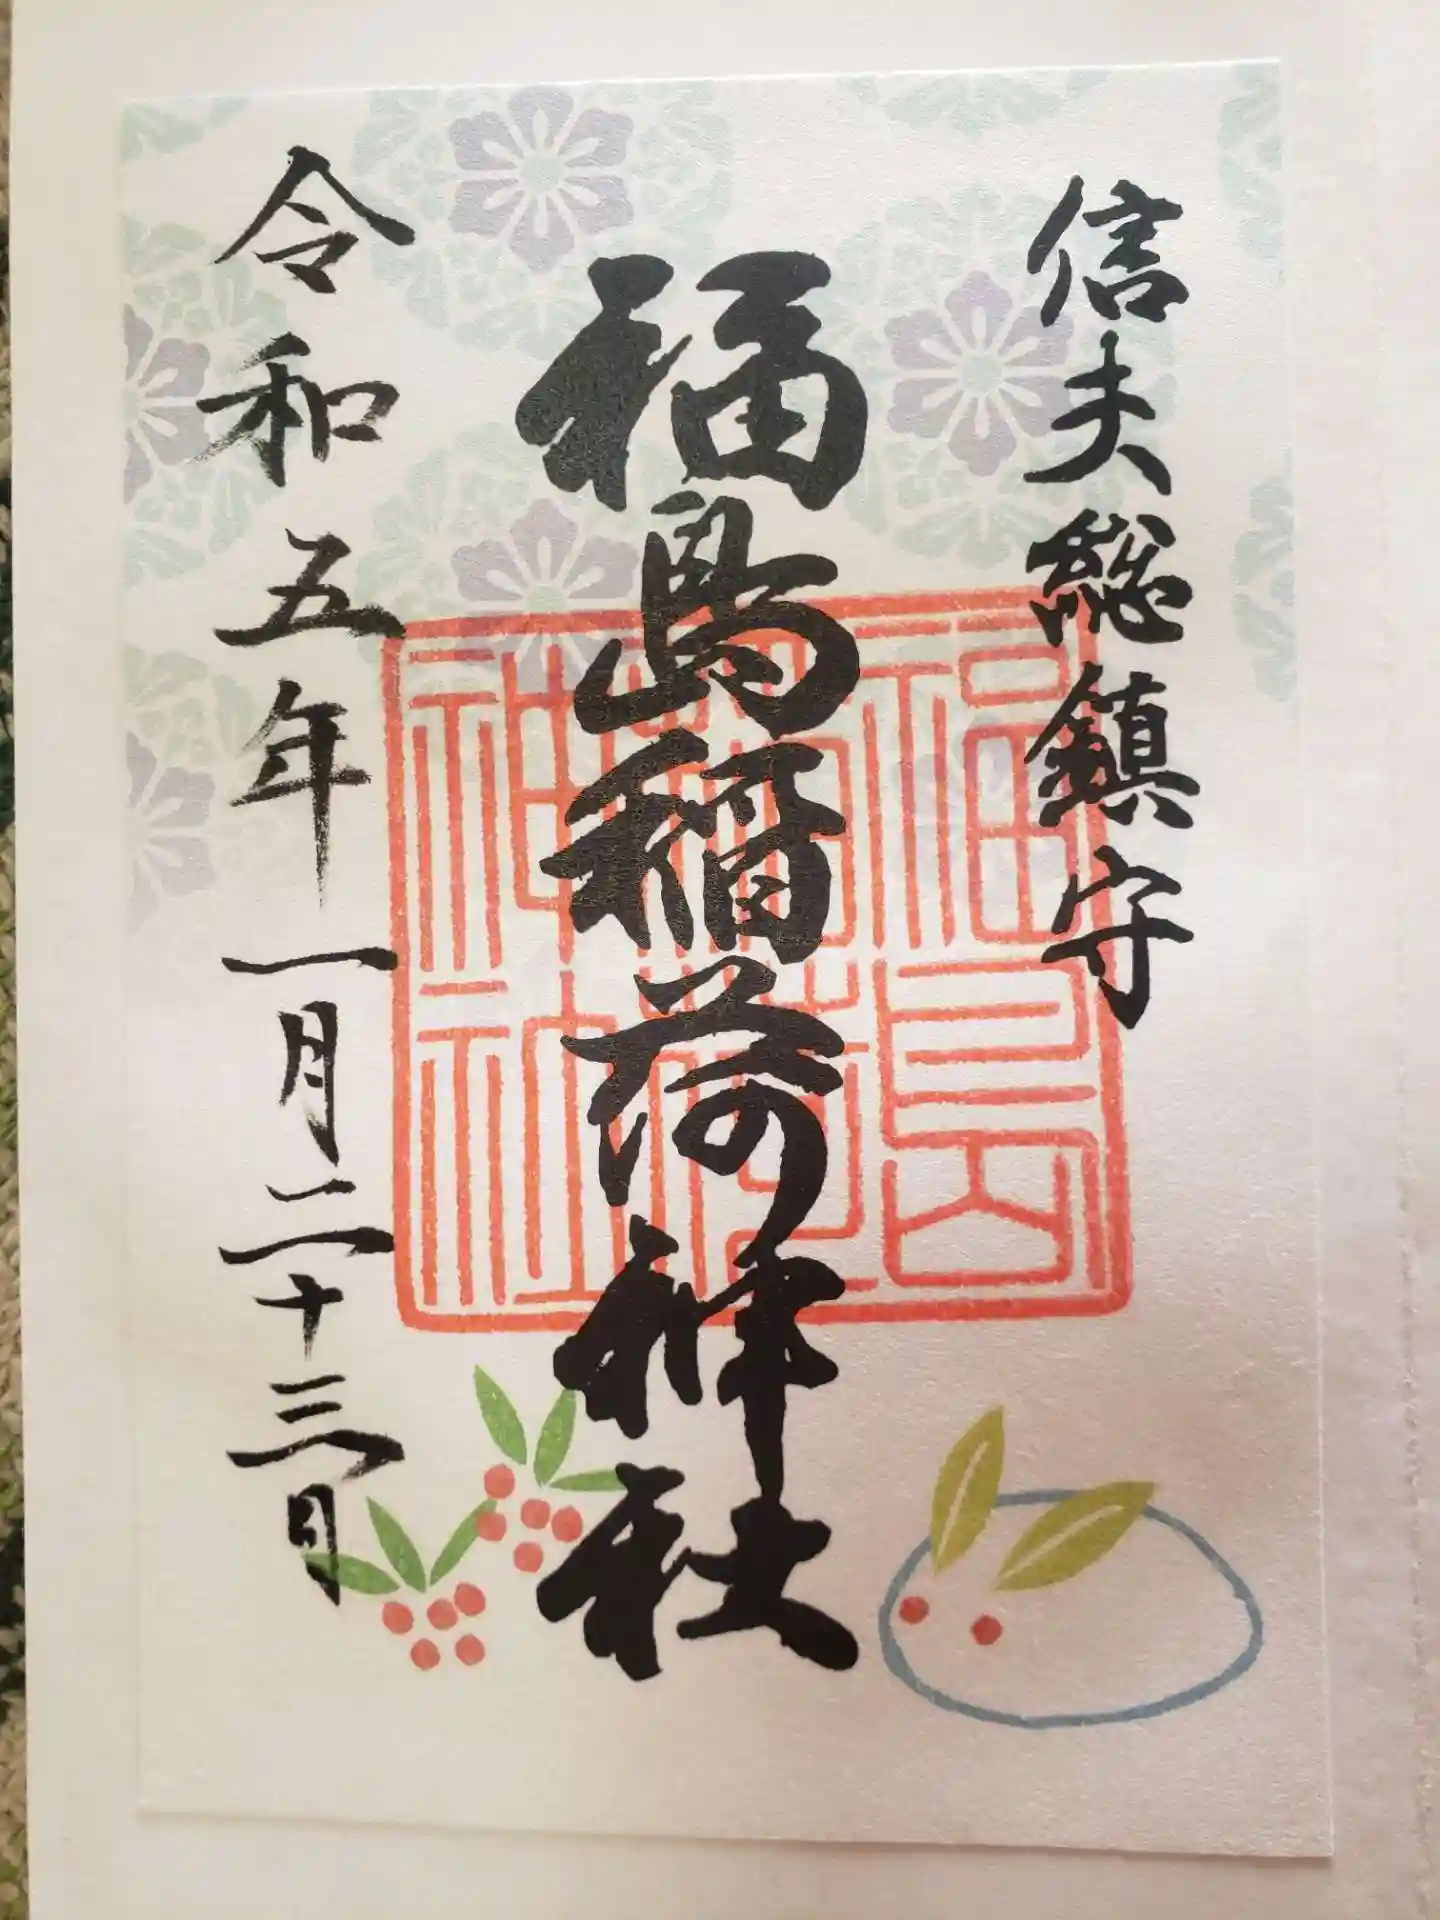 信夫総鎮守
福島稲荷神社
福島稲荷神社
令和五年一月二十三日